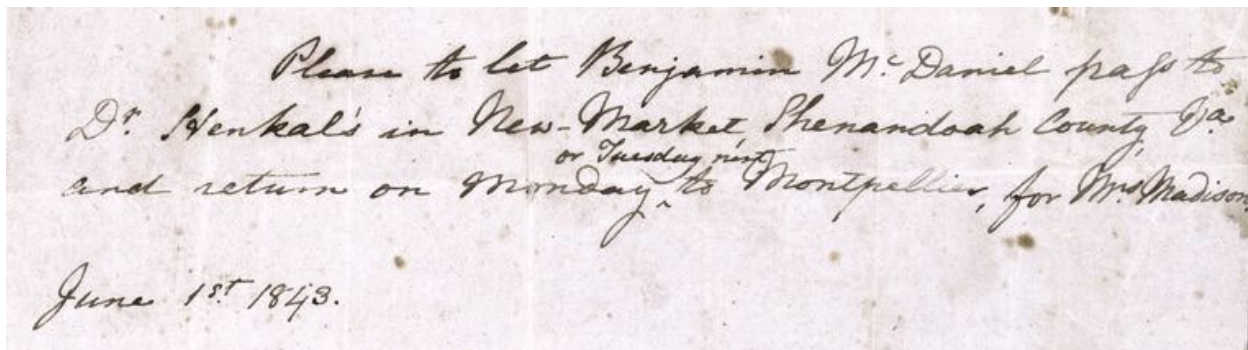 Please to let Benjamin McDaniel pass to
Dr. Henkal's in New-Market, Shenandoah County, Va.
or Tuesday next
and return on Monday^ to Montpellier, for Mrs. Madison.
June 1st 1843.